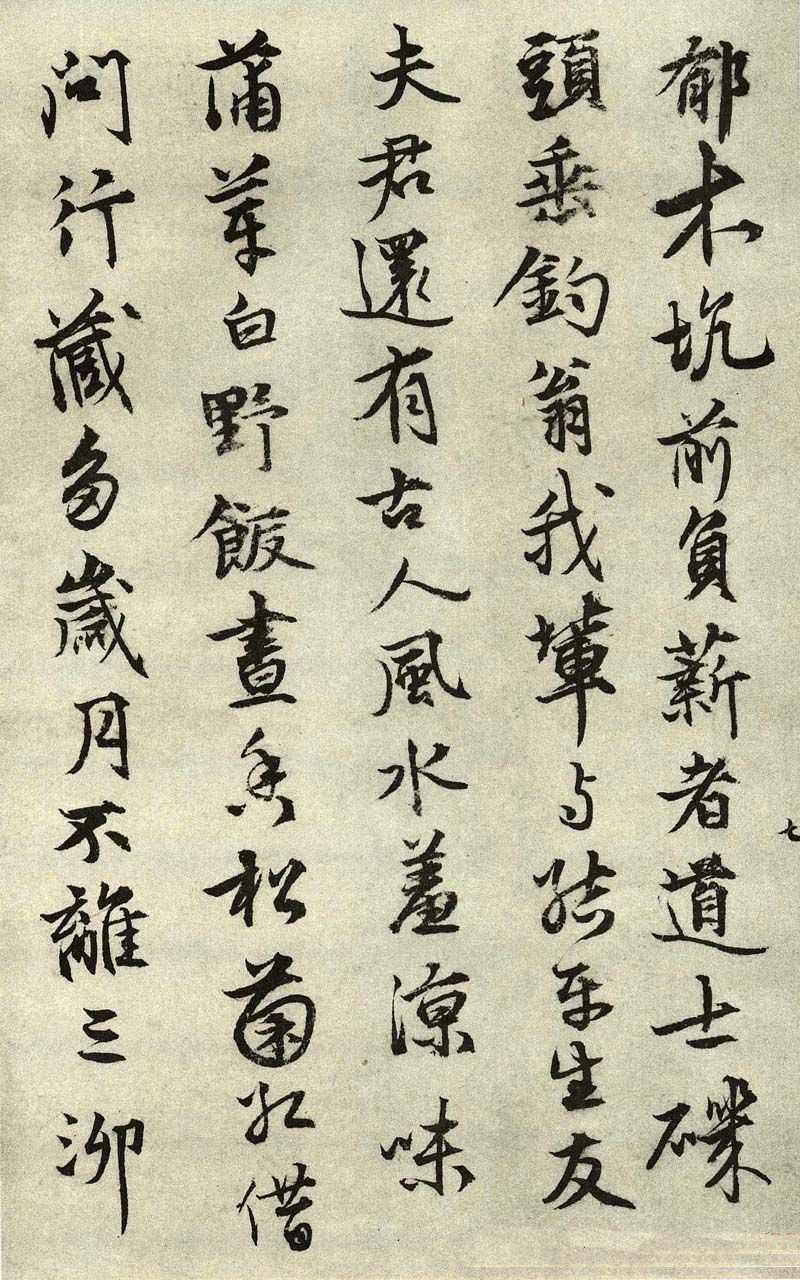 郁木坑前負薪者道士磯
頭垂釣翁我輩与結平生友
夫君還有古人風水羞涼味
蒲芽白野飯晝香松菌紅借
問行藏多歲月不離三泖